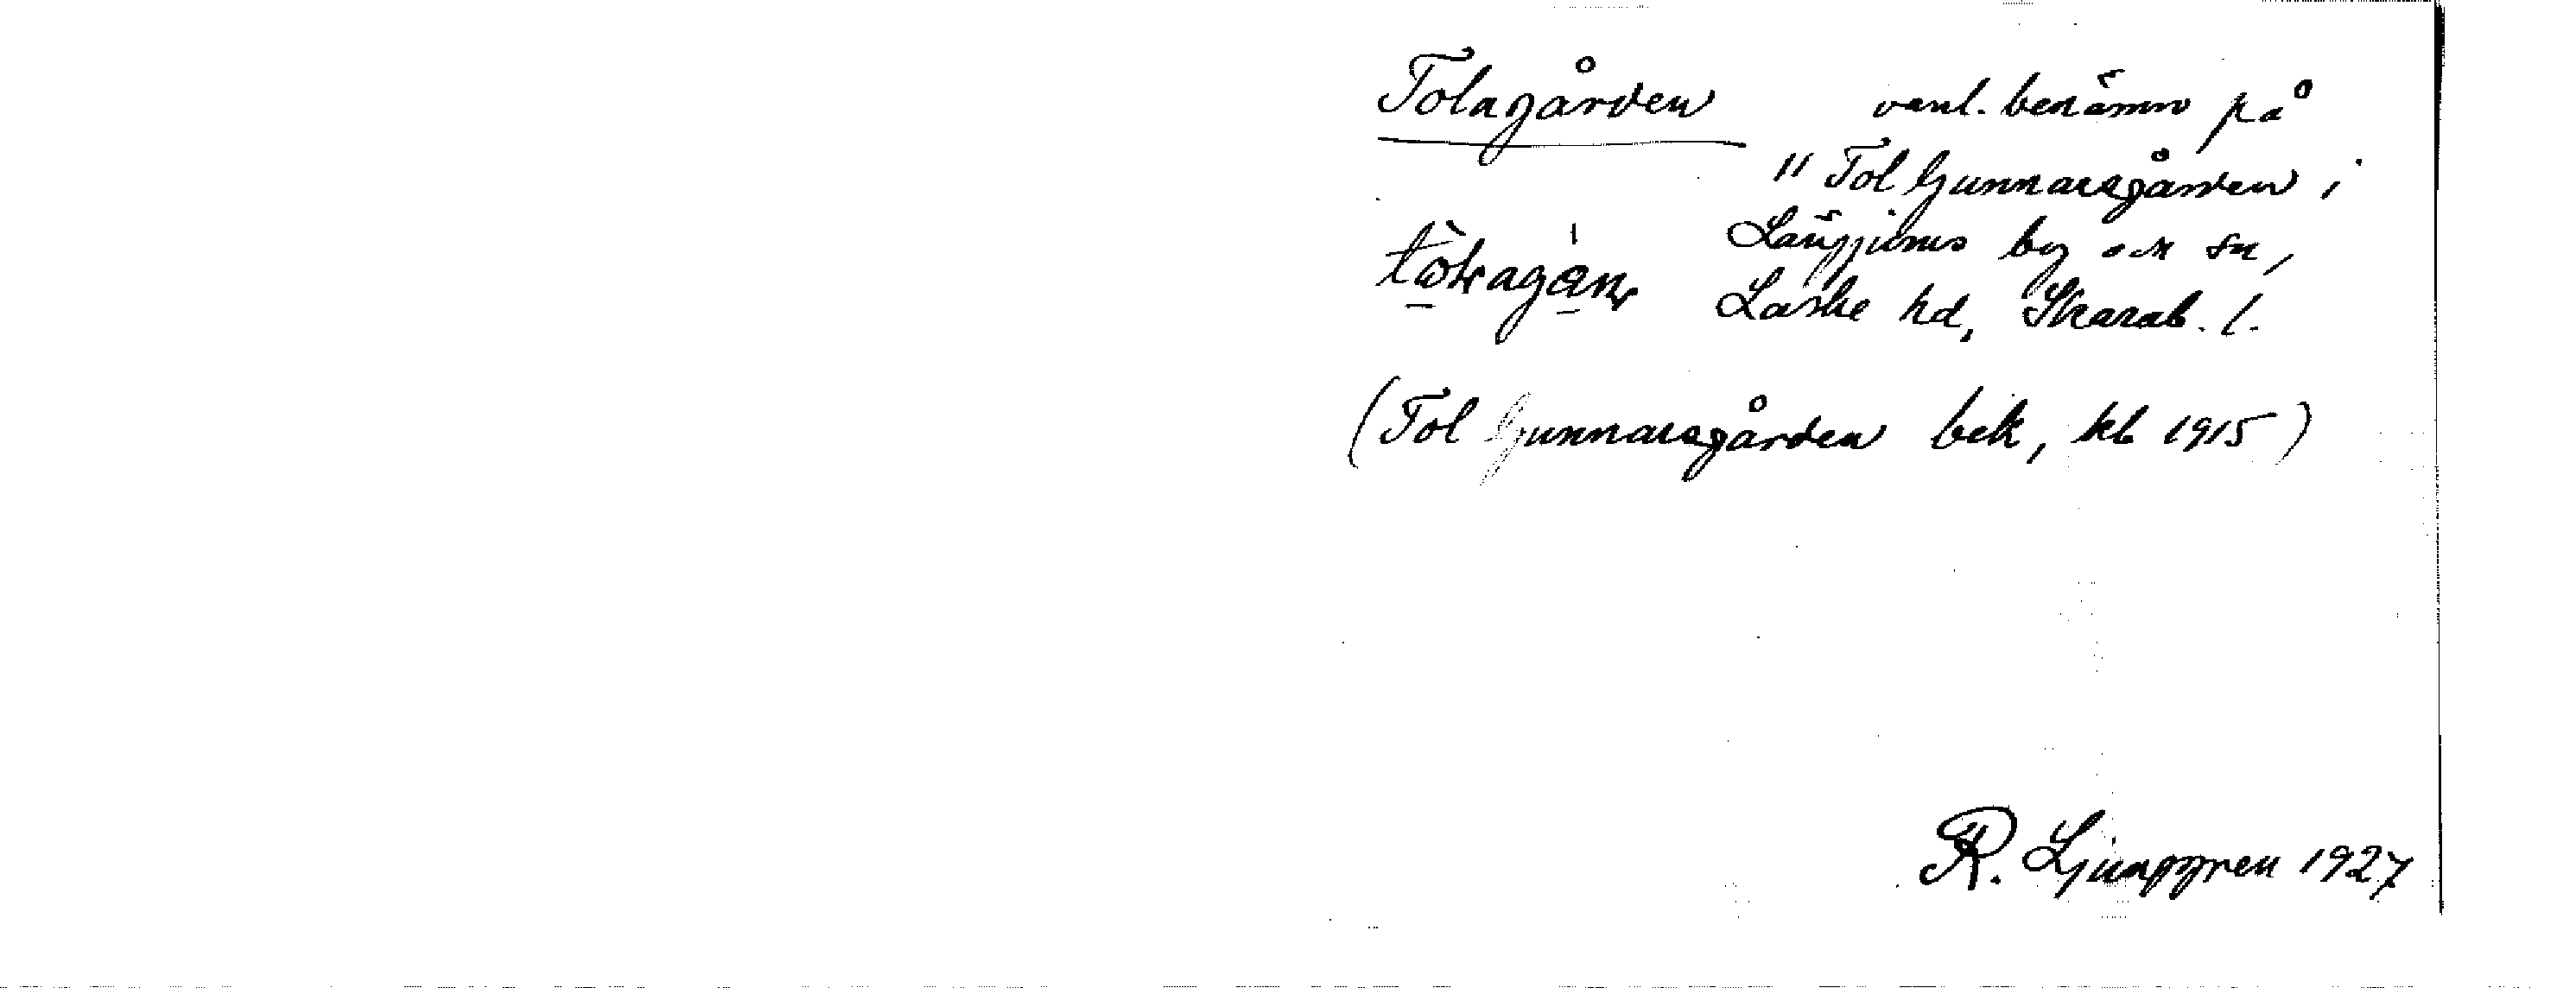 Tolagården vanl. benämn på
" Tol Gunnarsgården i
Längjums by och sn,
Laske hd, Skarab. l.
(Tol Gunnarsgården bek, kb 1915)
R. Ljunggren 1927